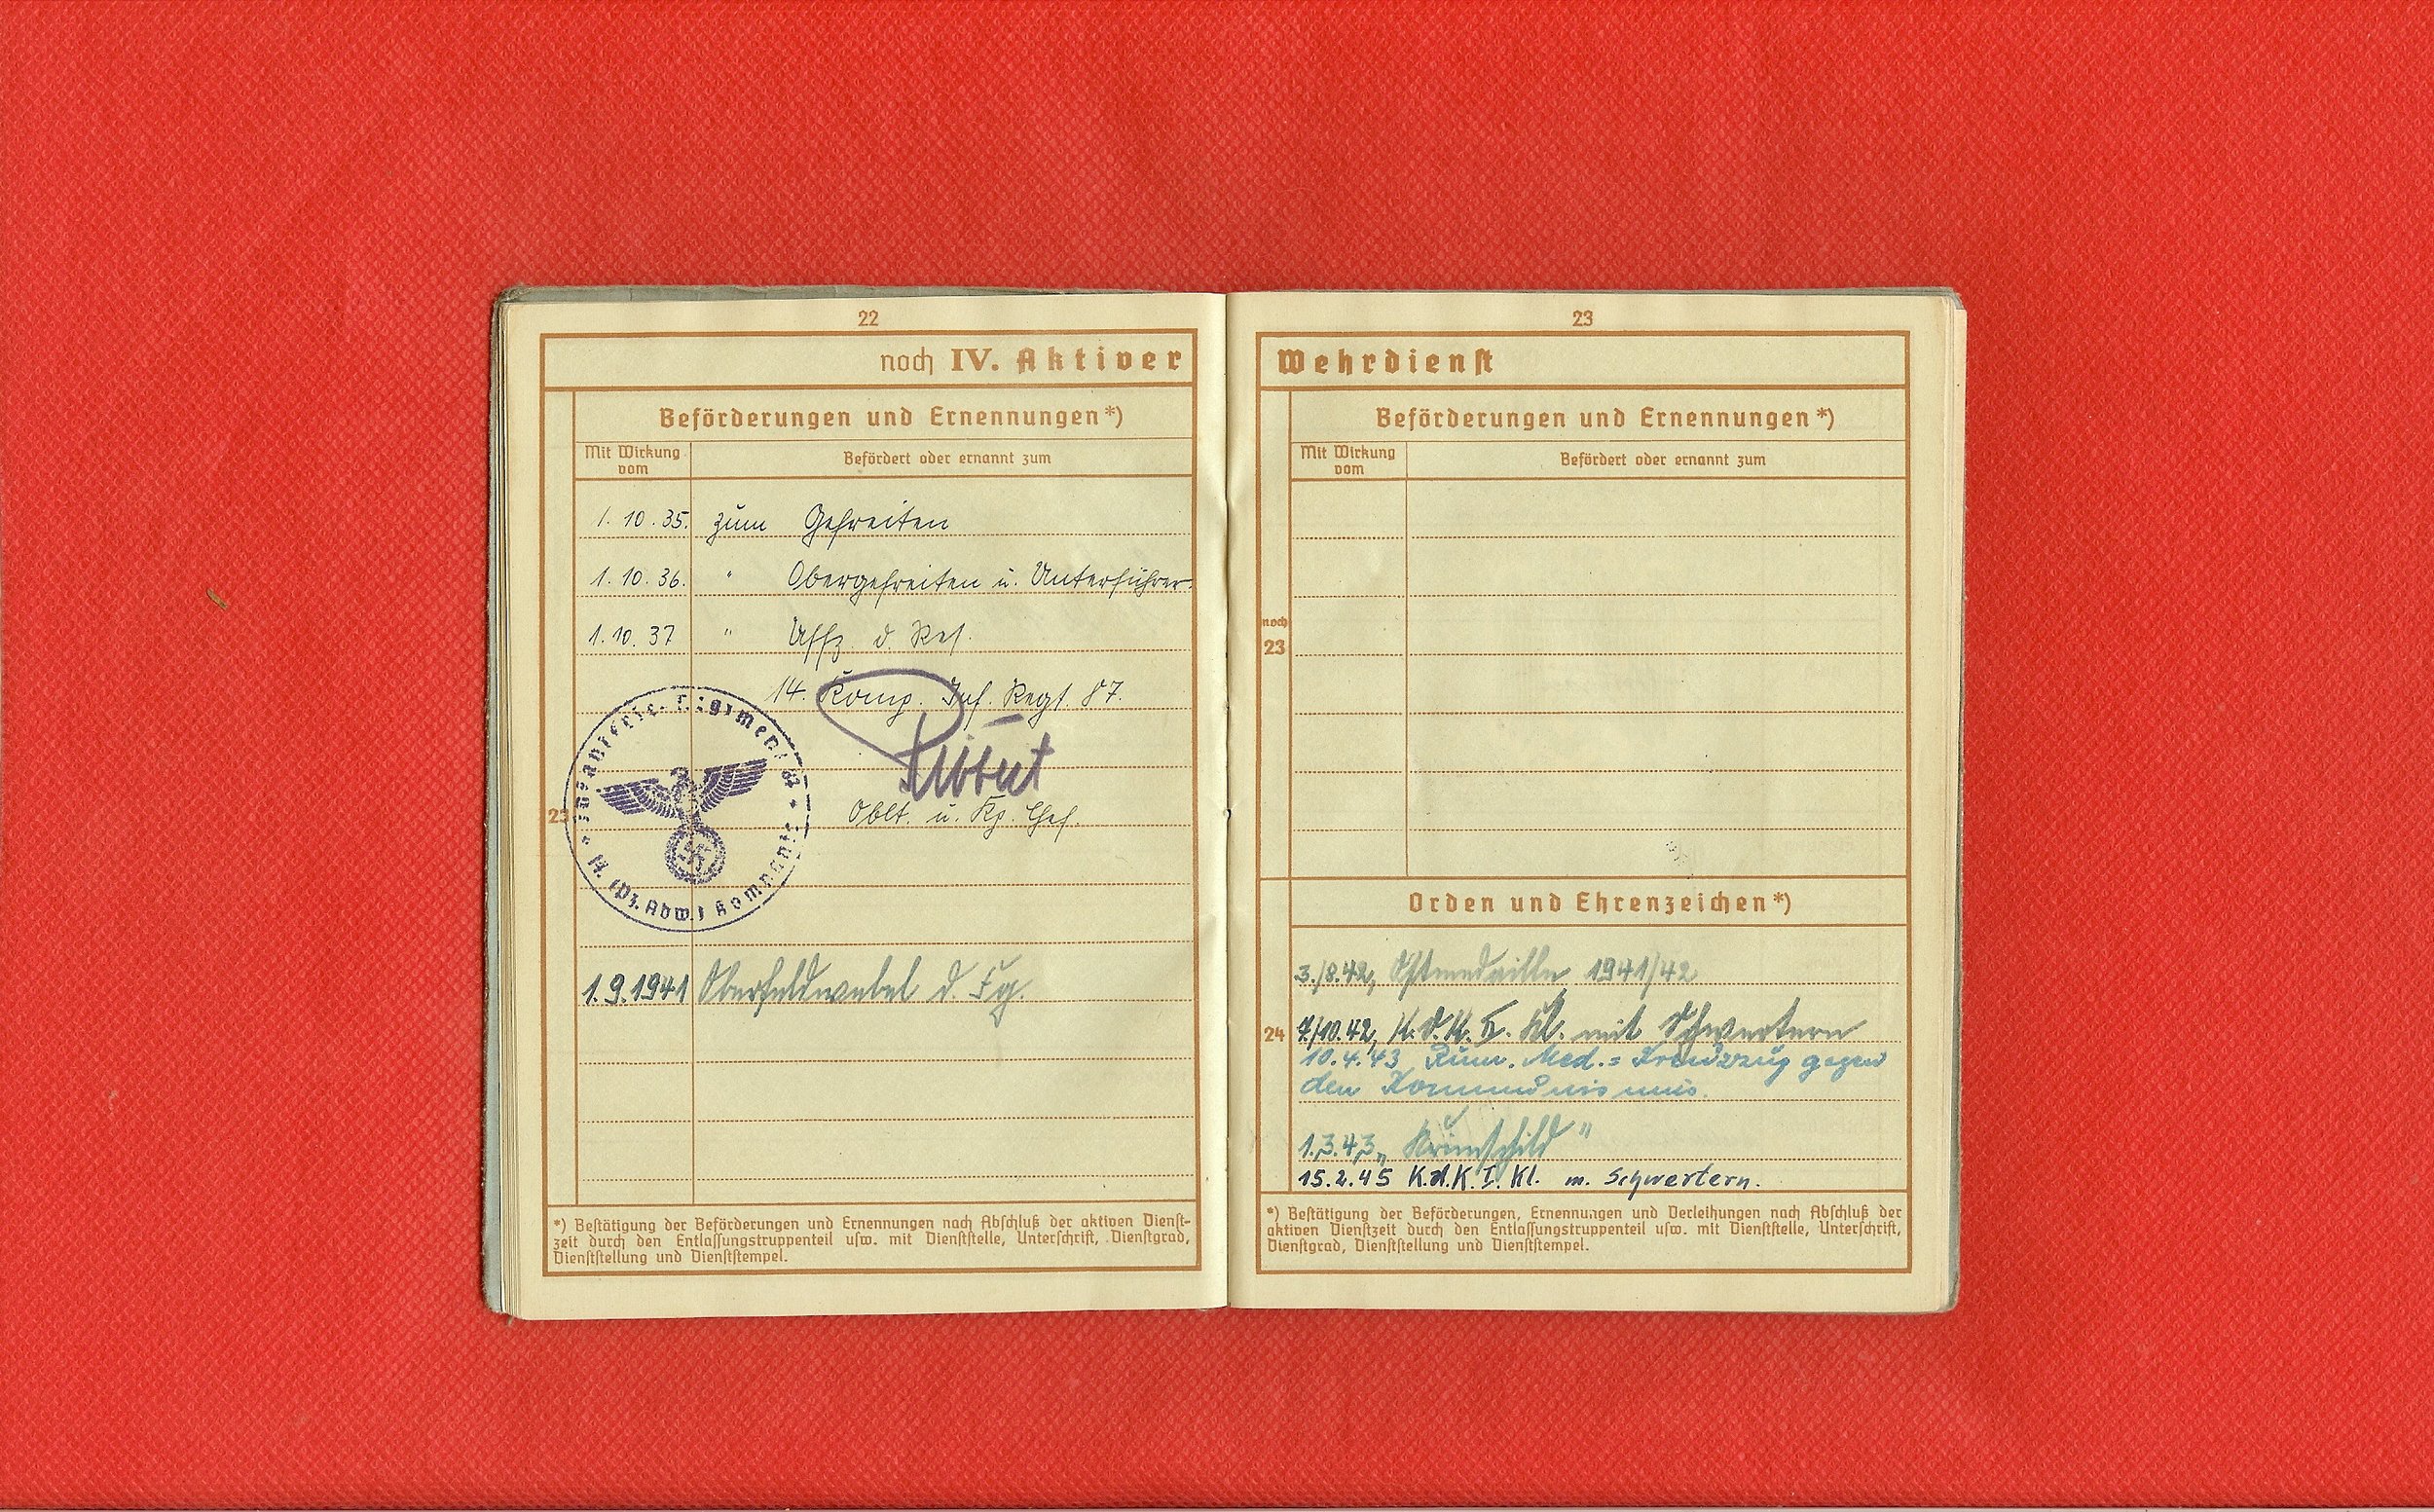 22
noch IV. Aktiver
Beförderungen und Ernennungen*)
Mit Wirkung vom
Befördert oder ernannt zum
1.10.35. zum Gefreiten
1.10.36. " Obergefreiten u. Unterführer.
1.10.37 " Uffz. d. Res.
14. Komp. Inf. Regt. 87.
Oblt. u. Kp. Chef.
23
14. (Pz. Abw.) Kompanie
1.9.1941 Oberfeldwebel d.
*) Bestätigung der Beförderungen und Ernennungen nach Abschluß der aktiven Dienst-
zeit durch den Entlassungstruppenteil usw. mit Dienststelle, Unterschrift, Dienstgrad,
Dienststellung und Dienststempel.
23
Wehrdienst
Beförderungen und Ernennungen*)
Mit Wirkung vom
Befördert oder ernannt zum
noch
23
Orden und Ehrenzeichen*)
3./8.42, Ostmedaille 1941/42
24
7/10.42, K.d.K. II. Kl. mit Schwertern
10.4.43 Rum. Med.= Kreuzzug gegen
den Kommunismus.
1.3.43 „Krimschild"
15.2.45 K.d.K. I. Kl. m. Schwertern.
*) Bestätigung der Beförderungen, Ernennungen und Verleihungen nach Abschluß der
aktiven Dienstzeit durch den Entlassungstruppenteil usw. mit Dienststelle, Unterschrift,
Dienstgrad, Dienststellung und Dienststempel.